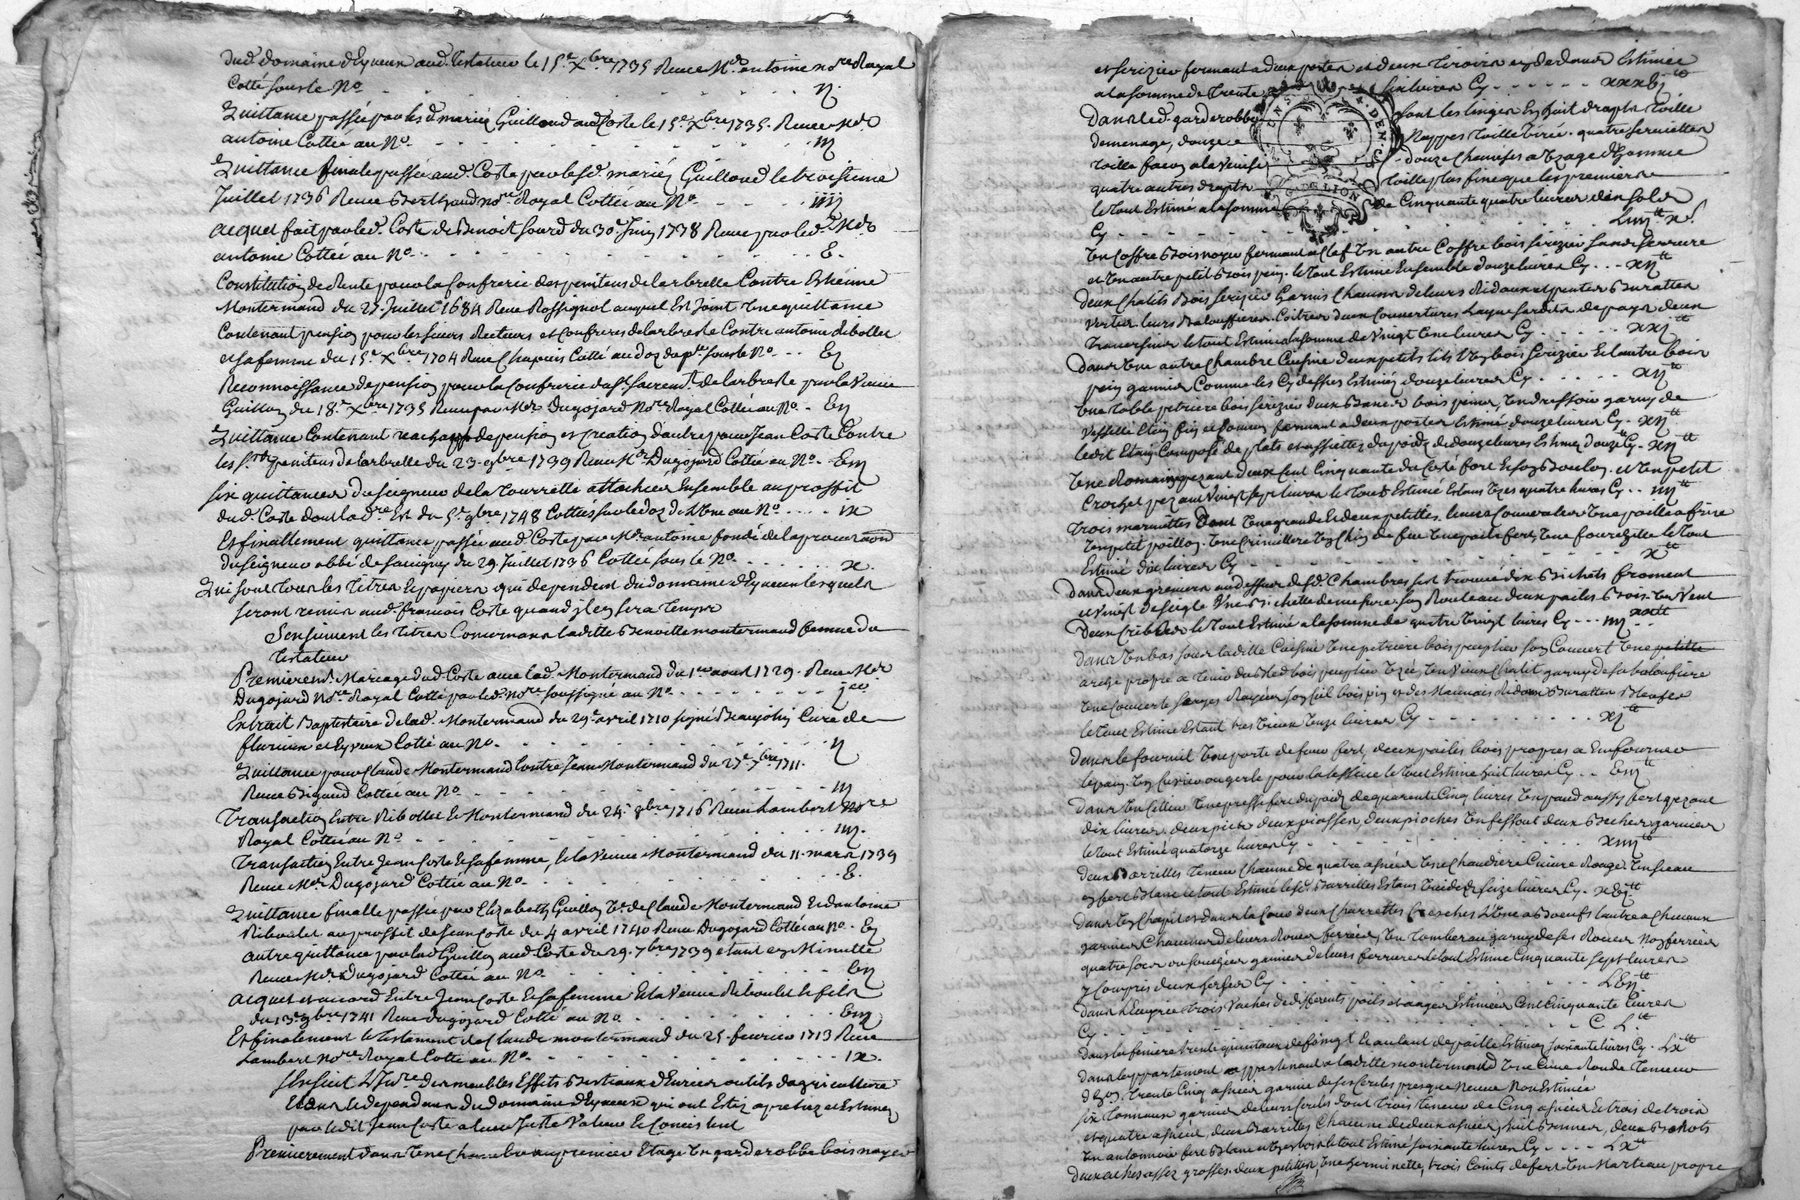 dud. domaine d'Eyveux aud. testateur le 15e Xbre 1735 Receu Me antoine nore Royal
Cotté sous le No. ij
Quittance passée par les d. mariés Guilloud aud Coste le 15e Xbre 1735. Receu Me
antoine Cottée au No. iij
Quittance finale passée aud Coste par les d. mariés Guilloud le troisieme
Juillet 1736 Receu Berthaud nore Royal Cottée au No. iiij
acquet fait par led. Coste de Benoit Sourd du 30e Juin 1738 Receu par led. Me
antoine Cotté au No. v.
Constitution de Rente pour la Confrerie des penitens de larbresle Contre Estienne
Montermand du 27 Juillet 1684 Receu Rossignol auquel Est Joint Une quittance
Contenant pension pour les sieurs Recteurs et Confreres de larbresle Contre antoine Ribollet
et sa femme du 15e Xbre 1704 Receu Chapuis Cotté au dos sous le No. vj
Reconnoissance de pension pour la Confrerie du St. Sacremt. de larbresle par la Veuve
Guillon du 18e Xbre 1735 Receu par Me Dugojard Nore Royal Cottée au No. vij
Quittance Contenant reachapt de pension et Creation d'autre pour Jean Coste Contre
les penitens de larbresle du 23 9bre 1739 Receu Me Dugojard Cottée au No. viij
six quittances du seigneur de la Tourrette attachées Ensemble au proffit
dud. Coste dont la dre. Est du 5e 9bre 1748 Cottées sur le dos de l'Une au No. ix
Et finallement quittance passée aud Coste par Me antoine fondé de la procuraon
du seigneur abbé de savigny du 29 Juillet 1736 Cottée sous le No. x
Qui sont tous les titres Et papiers qui dependent du domaine d'Eyveux lesquels
seront remis aud. francois Coste quand il en sera temps
Sensuivent les titres Concernans ladite Benoitte montermand femme du
testateur
Premierent. Mariage dud Coste avec lad. Montermand du 1er aoust 1729. Receu Me
Dugojard Nore Royal Cotté par led. nore soussigné au No.
Extrait Baptistaire de lad. Montermand du 29e avril 1710 signé Beaujolin Curé de
fleurieu et Eyveux Cotté au No. ij
Quittance pour Claude Montermand Contre Jean Montermand du 27e 7bre 1711.
Receu Brigand Cottée au No. iij
Transaction Entre Ribollet Et Montermand du 24. 8bre 1716 Receu Lambert Nore
Royal Cottée au No. iiij.
Transaction Entre Jean Coste Et sa femme, Et la Veuve Montermand du 11 mars 1739
Receu Me Dugojard Cottée au No. v.
Quittance finalle passée par Elizabeth Guillon Ve de Claude Montermand Et d'antoine
Riboulet au proffit de Jean Coste du 4 avril 1740 Receu Dugojard Cottée au No. vj
autre quittance par lad Guillon aud Coste du 29. 7bre 1739 etant en Minutte
Receu Me Dugojard Cottée au No. vij
acquet et accord Entre Jean Coste Et sa femme Et la Veuve Riboulet Et fils
du 13e 9bre 1741 Receu Dugojard Cotté au No. viij
Et finalement le testament de Claude montermand du 25 fevrier 1713 Receu
Lambert nore Royal Cotté au No. ix.
sEnsuit L'Jnre. des meubles Effets Bestiaux d'Ecurie outils d'agriculture
Et dans les dependances du domaine d'Eyveux qui ont Esté apretiez et Estimez
par ledit Jean Coste a leur Juste Valeur Et Consistent
Premierement dans Une Chambre au premier Etage Un garderobbe bois noyer
et serizier fermant a deux portes et deux tiroirs en dedans Estimée
a la somme de trente six livres Cy xxxvj tt
Dans led. garderobbe sont les linges En huit draps toille
de menage, douze Nappes toille tirée quatre serviettes
toille facon a la Venise douze Chemises a Usage d'homme
quatre autres draps toille plus fine que les premiers
le tout Estimé a la somme de Cinquante quatre livres dix sols
Cy Liiij tt x s
Un Coffre Bois noyer fermant a Clef Un autre Coffre bois serizier sans serrure
et Un autre petit Bois pin le tout Estimé Ensemble douze livres Cy xij tt
deux Chalits Bois serizier Garnis Chacun de leurs Rideaux et pentes Buratte
vertes leurs Balouffieres Coitres deux Couvertures Layne sardis de pays deux
traversiers le tout Estimé a la somme de Vingt Une livres Cy xxj tt
Dans Une autre Chambre Cuisine deux petits lits Un bois serizier Et l'autre bois
pin garnis Comme les Cy dessus Estimés douze livres Cy xij tt
Une table petriere bois serizier deux Bancs bois, Un dressoir garny de
vesselle Etain fermant a deux portes Estimé douze livres Cy xij tt
ledit Etain Composé de plats et assiettes du poids de douze livres Estimés douze tt Cy xij tt
Une Romaine pezant deux Cent Cinquante du Costé fort et Un petit
Crochet pezant Vingt sept livres le tout Estimé quatre livres Cy iiij tt
Trois marmittes dont Une grande Et deux petittes, leurs Couvercles Une poille a frire
Un petit poillon, Une Crimillere Un Chien de feu Une paille fert, Une fourchette le tout
Estimé dix livres Cy x tt
dans deux greniers au dessus desd. Chambres sest trouvé dix Bichets froment
et Vingt de seigle Une Bichette de mesure son Rouleau deux pailes Bois Un Vent
deux Cribles le tout Estimé a la somme de quatre Vingt livres Cy
dans Un bas sous ladite Cuisine Une petriere bois peuplier son Couvert Une petitte
arche propre a tenir du bled bois peuplier Uzée, Un Vieux Chalit garny de sa balouffiere
Une Couverte sarges Rayée son Ciel bois pin et des Mauvais Rideaux Buratte Bleufs
le tout Estimé Estant tres Vieux Unze livres Cy xj tt
dans le fournil Une porte de four fert, deux pailes bois propres a Enfourner
le pain, Un Cuvier ou gerle pour la lessive le tout Estimé huit livres Cy viij tt
dans Un Cellier Une presse fert du poids de quarente Cinq livres Un paud aussy fert pezant
dix livres, deux pics deux piosses, deux pioches Un fessoul deux Beches garnies
le tout Estimé quatorze livres Cy xiiij tt
deux Barrilles teneur Chacune de quatre asnées Une Chaudiere Cuivre Rouge Un seau
en fert Blanc le tout Estimé lesd. Barrilles Estans Vuides seize livres Cy xvj tt
dans Un Chapit et dans la Cour deux Charrettes l'Une a Boeufs l'autre a Chevaux
garnies Chacune de leurs Roues ferrées, Un tombereau garny de ses Roues Non ferrées
quatre socs ou soulliers garnies de leurs ferrures le tout Estimé Cinquante sept livres
y Compris deux Cy Lvij tt
dans l'Ecurie trois Vaches de differents poils et ages Estimées Cent Cinquante livres
Cy C L tt
dans la feniere trente quintaux de foing Et autant de paille Estimés soixante livres Cy Lx tt
dans l'appartement appartenant a ladite montermand Une Cuve Ronde teneur
d'En. Trente Cinq asnées garnie de ses Cercles presque Neuve Non Estimée
six Tonneaux garnis de leurs Cercles dont trois teneur de Cinq asnées Et trois de trois
et quatre asnées, deux Barrilles Chacune de deux asnées, huit Bennes, deux Bachots
Un antonnoir fert Blanc et le tout Estimé soixante livres Cy Lx tt
deux aches assez grosses deux petittes, Une herminette, trois Coints de fert Un Marteau propre